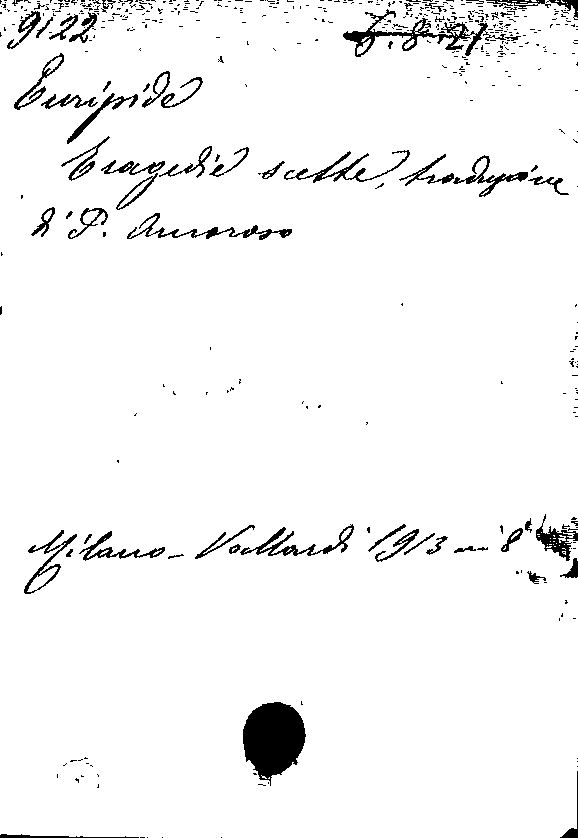 9122 6.8.21
Euripide
Tragedie scelte, traduzione
di P. Amoroso
Milano - Vallardi 1913 in 8°